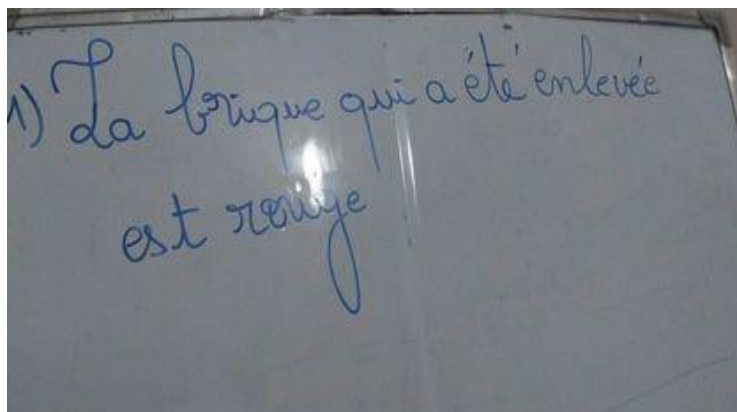 1) La brique qui a été enlevée
est rouge